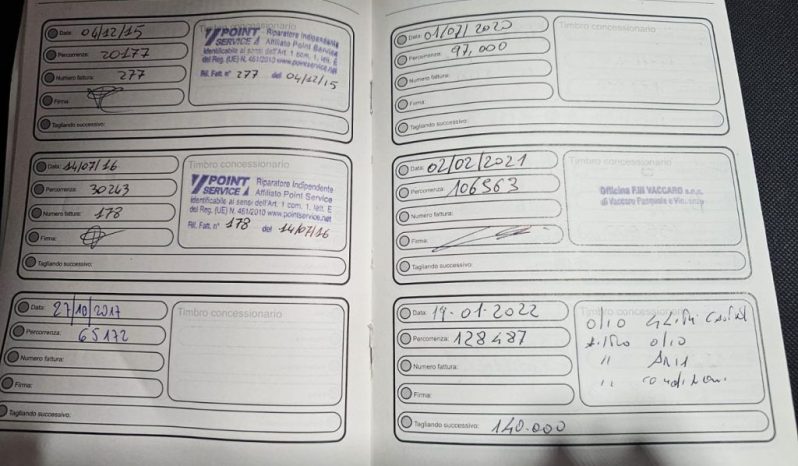 Data: 04/12/15
Timbro concessionario
Percorrenza: 20177
Numero fattura: 277
Firma:
POINT SERVICE Riparatore Indipendente
Affiliato Point Service
Identificabile ai sensi dell'Art. 1 com. 1, lett. E
del Reg. (UE) N. 461/2010 www.pointservice.net
Rif. Fatt. n° 277 del 04/12/15
Tagliando successivo:
Data: 14/07/16
Timbro concessionario
Percorrenza: 30243
Numero fattura: 178
Firma:
POINT SERVICE Riparatore Indipendente
Affiliato Point Service
Identificabile ai sensi dell'Art. 1 com. 1, lett. E
del Reg. (UE) N. 461/2010 www.pointservice.net
Rif. Fatt. n° 178 del 14/07/16
Tagliando successivo:
Data: 27/10/2017
Timbro concessionario
Percorrenza: 65172
Numero fattura:
Firma:
Tagliando successivo:
Data: 01/07/2020
Timbro concessionario
Percorrenza: 97,000
Numero fattura:
Firma:
Tagliando successivo:
Data: 02/02/2021
Timbro concessionario
Percorrenza: 106563
Numero fattura:
Firma:
Officina F.lli VACCARO s.n.c.
di Vaccaro Pasquale e
Tagliando successivo:
Data: 19-01-2022
Timbro concessionario
Percorrenza: 128487
Numero fattura:
Firma:
olio
filtro olio
" ARIA
"
Tagliando successivo: 140.000